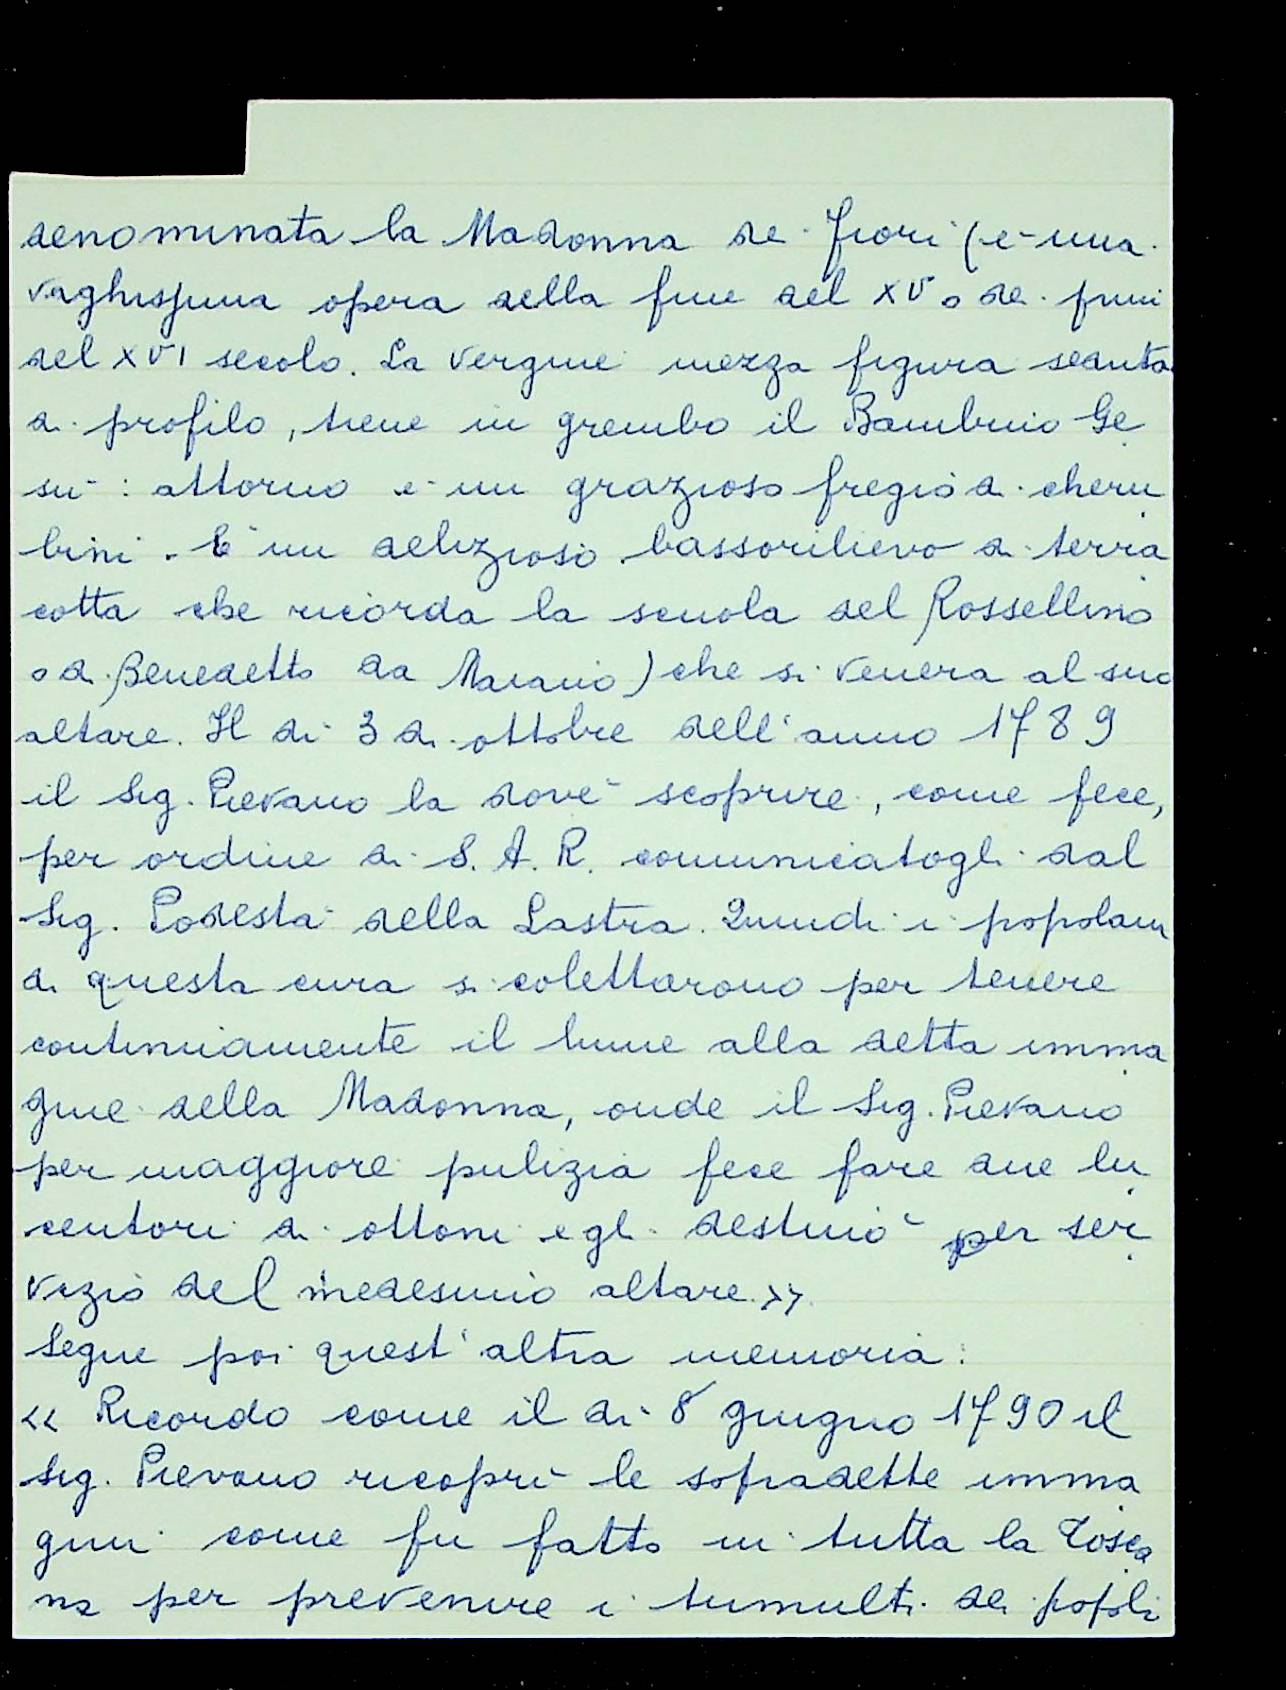 denominata la Madonna de' fiori (è una
vaghissima opera della fine del XV o de' primi
del XVI secolo. La Vergine mezza figura seduta
di profilo, tiene in grembo il Bambino Ge
sù: attorno è un grazioso fregio di cheru
bini. È un delizioso bassorilievo di terra
cotta che ricorda la scuola del Rossellino
o di Benedetto da Maiano) che si venera al suo
altare. Il dì 3 di ottobre dell'anno 1789
il Sig. Pievano la dovè scoprire, come fece,
per ordine di S. A. R. comunicatogli dal
Sig. Podestà della Lastra. Quindi i popolani
di questa cura si colettarono per tenere
continuamente il lume alla detta imma
gine della Madonna, onde il Sig. Pievano
per maggiore pulizia fece fare due lu
centori di ottone e gli destinò per ser
vizio del medesimo altare.»
Segue poi quest'altra memoria:
« Ricordo come il dì 8 giugno 1790 il
Sig. Pievano ricoprì le sopradette imma
gini come fu fatto in tutta la Tosca
na per prevenire i tumulti dei popoli